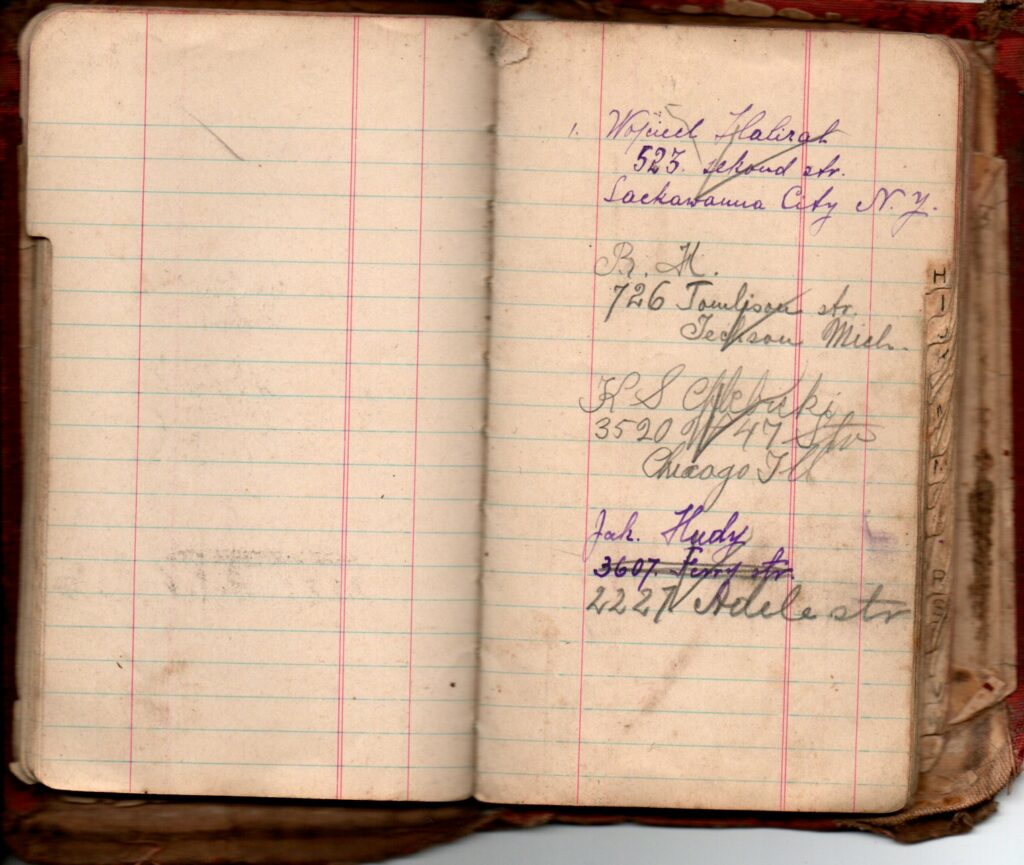 1. Wojciech Halirat
523. sekond str.
Lackawanna City N. Y.
R. H.
726 Tomlison str.
Jeckson Mich.
K S
3520 W 47 Str
Chicago Ill
Jak. Hudy
3607 Ferry str.
2227 Adele str
H
I